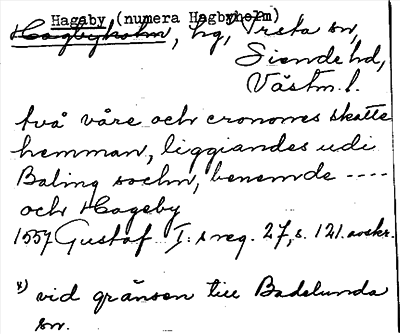 Hagaby (numera Hagbyholm)
Hagbyholm, hg, Irsta sn,
Siende hd,
Västm. l.
två våre och cronones skatte
hemman, liggiandes udi
Baling sochn, benemde ----
och Hageby
1557 Gustaf I:s reg. 27, s. 121. avskr.
x) vid gränsen till Badelunda
sn.